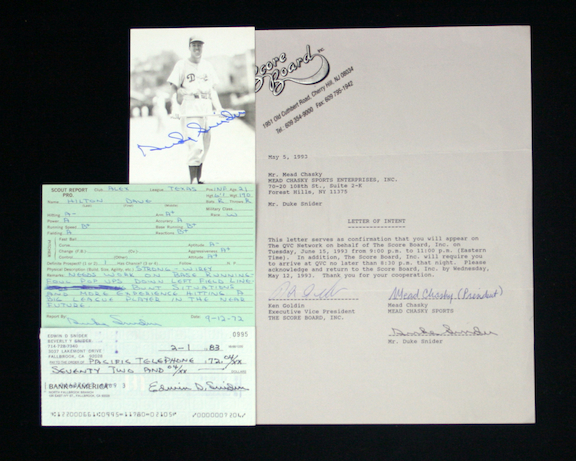 Duke Snider
Score Board, INC.
1951 Old Cuthbert Road, Cherry Hill, NJ 08034
Tel: 609 354-9000 Fax: 609 795-1942
May 5, 1993
Mr. Mead Chasky
MEAD CHASKY SPORTS ENTERPRISES, INC.
70-20 108th St., Suite 2-E
Forest Hills, NY 11375
Mr. Duke Snider
LETTER OF INTENT
This letter serves as confirmation that you will appear on
The QVC Network on behalf of The Score Board, Inc. on
Tuesday, June 15, 1993 from 9:00 p.m. to 11:00 p.m. (Eastern
Time). In addition, The Score Board, Inc. will require you
to arrive at QVC no later than 8:30 p.m. that night. Please
acknowledge and return to the Score Board, Inc. by Wednesday,
May 12, 1993. Thank you for your cooperation.
Mead Chasky (President)
Ken Goldin
Executive Vice President
THE SCORE BOARD, INC.
Mead Chasky
MEAD CHASKY SPORTS
Duke Snider
Mr. Duke Snider
SCOUT REPORT
PRO.
Club ALEX League TEXAS
Name HILTON DAVE
Physical Description (Build, Size, Agility, etc.) STRONG - WIRY
Remarks: NEEDS WORK ON BASE RUNNING
FOUR POP UPS DOWN LEFT FIELD LINE
BUNT SITUATIONS
AND MORE EXPERIENCE HITTING. A
BIG LEAGUE PLAYER IN THE NEAR
FUTURE
Report By Duke Snider Date 9-12-72
EDWIN D SNIDER
BEVERLY SNIDER
FALLBROOK, CA
0995
2-1 83
PACIFIC TELEPHONE 72 04/xx
SEVENTY TWO AND 04/xx
BANK OF AMERICA
Edwin D. Snider